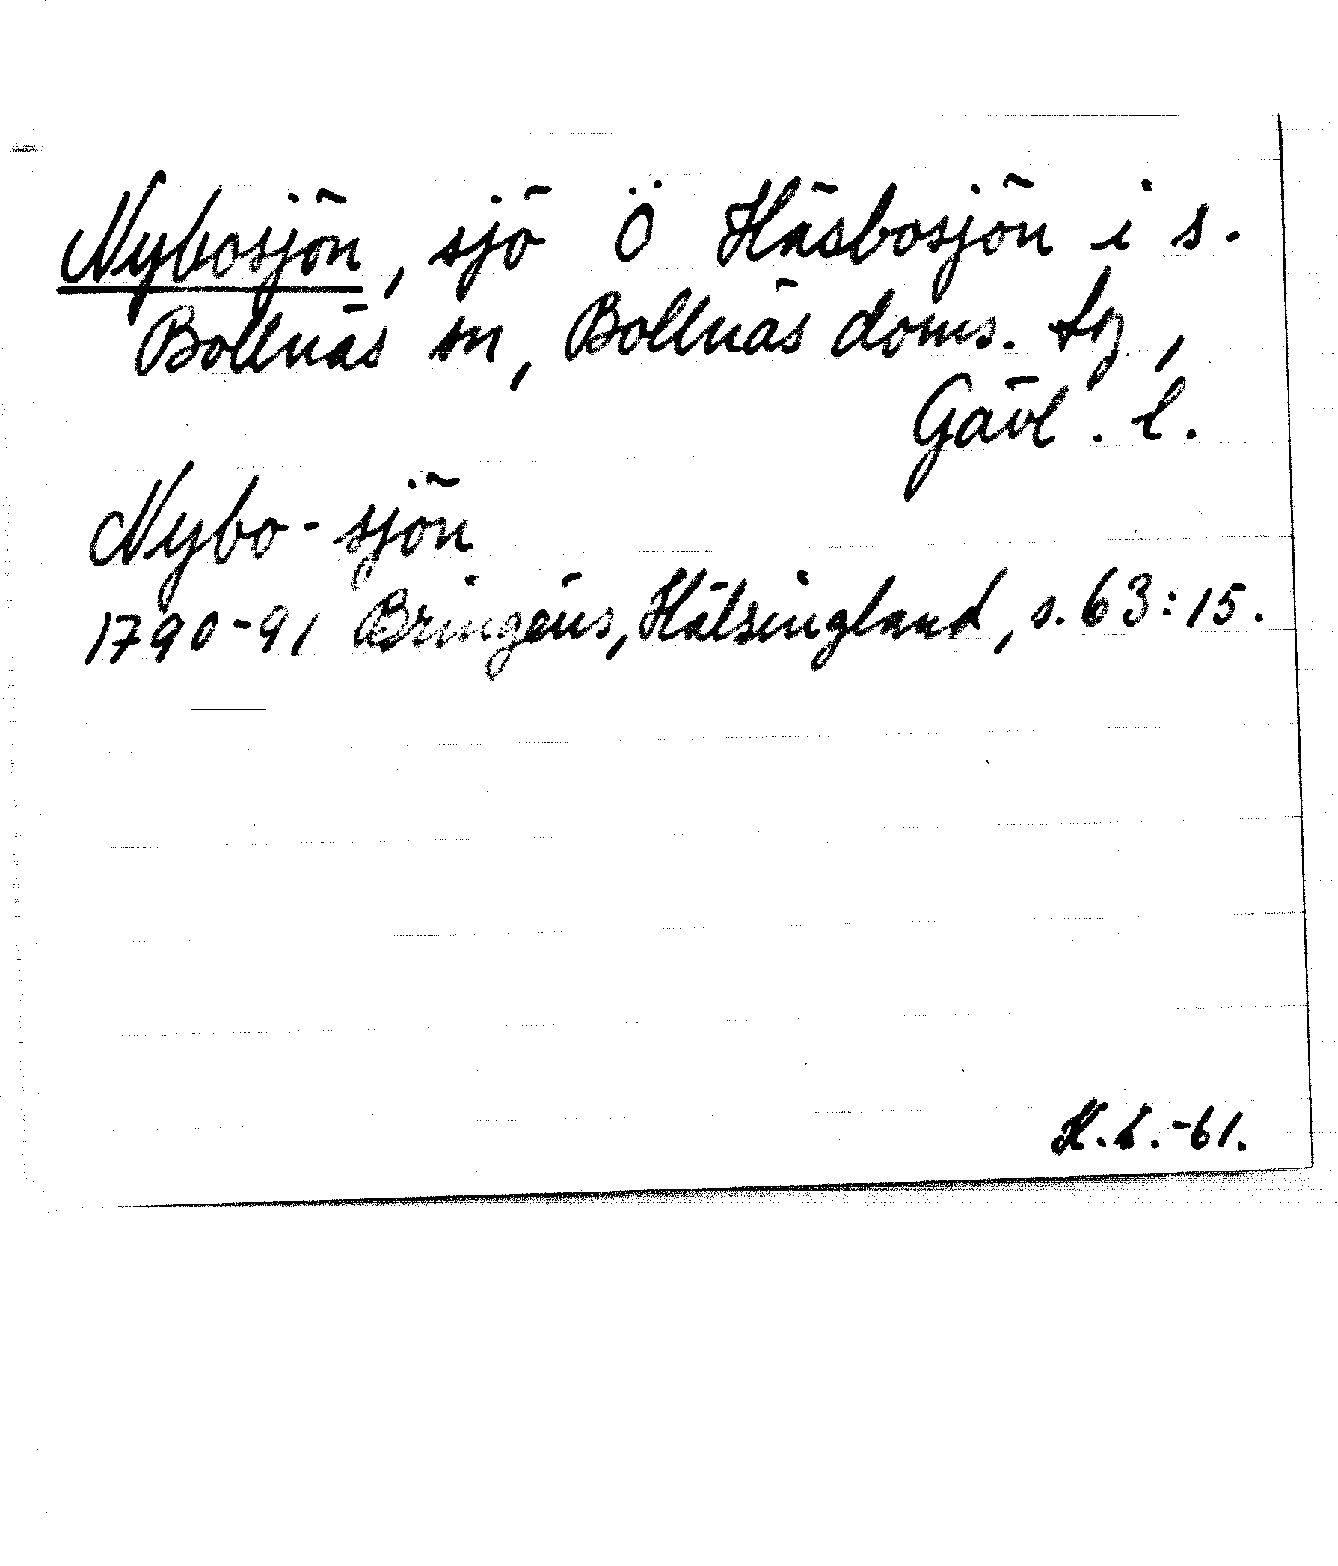 Nybosjön, sjö Ö Häsbosjön i s.
Bollnäs sn, Bollnäs doms. tg,
Gävl. l.
Nybo-sjön
1790-91 Bringéus, Hälsingland, s. 63:15.
H.L.-61.